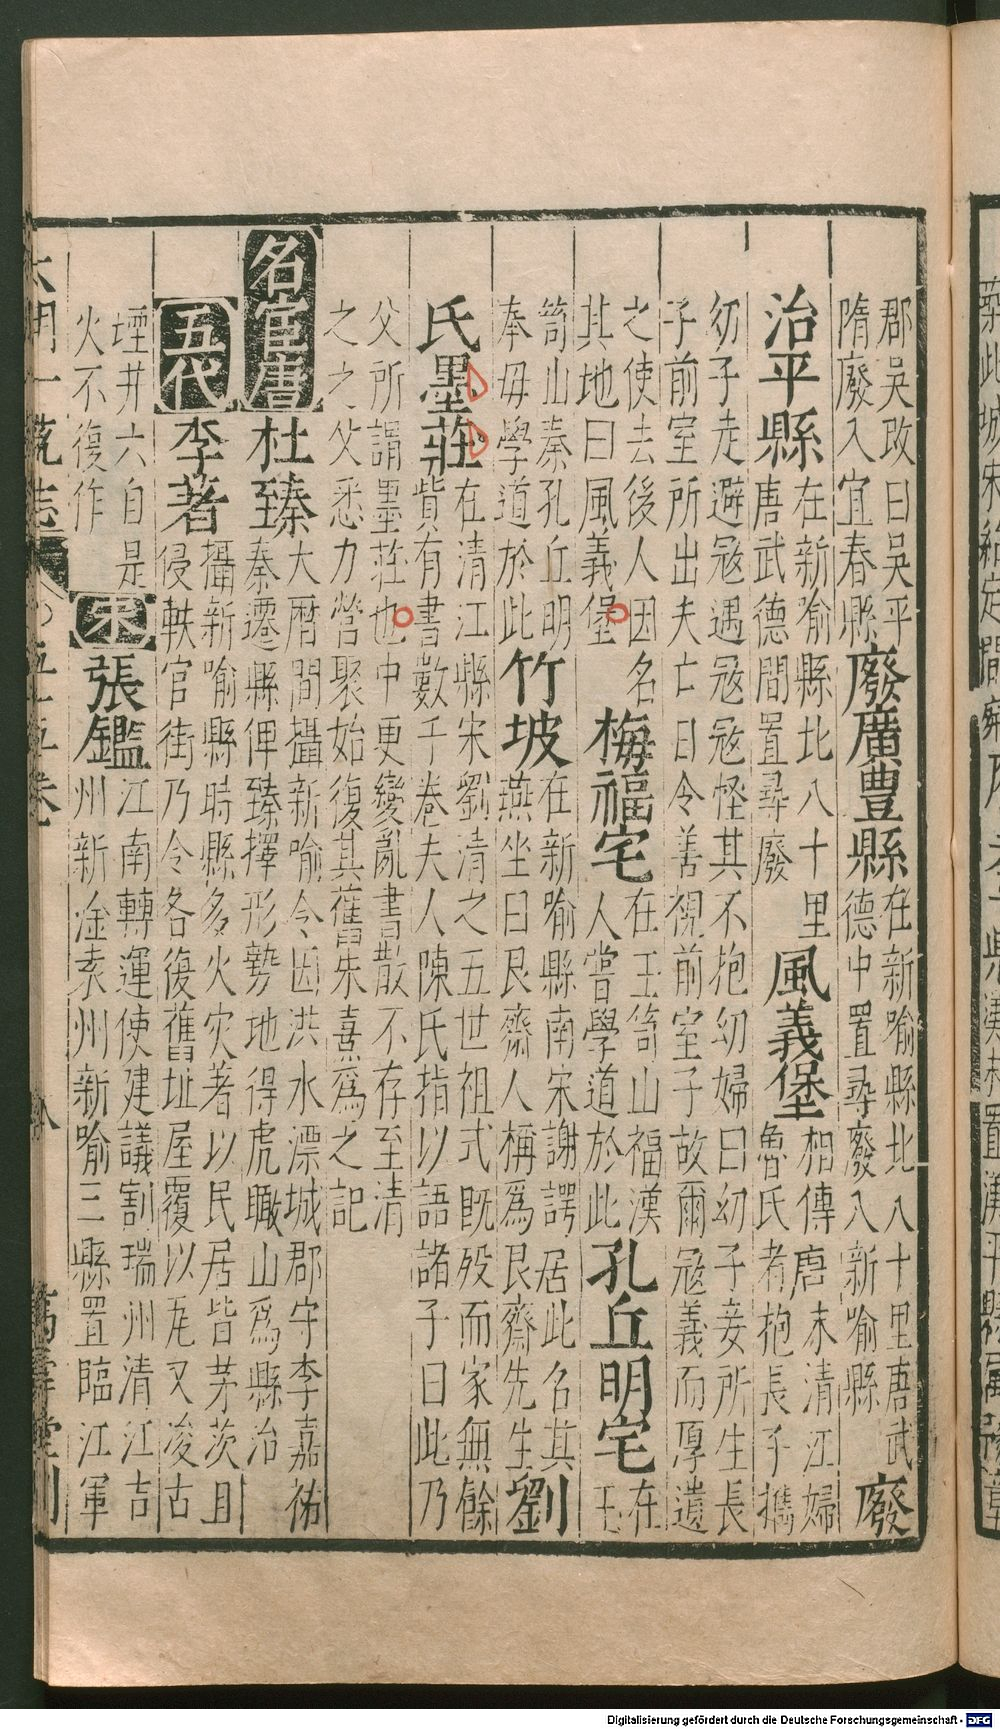 郡吳改曰吳平隋廢入宜春縣廢廣豊縣在新喻縣北八十里唐武德中置尋廢入新喻縣廢
治平縣在新喻縣北八十里唐武德間置尋廢風義堡相傳唐末清江婦魯氏者抱長子攜
幼子走避冦遇冦冦怪其不抱幼婦曰幼子妾所生長
子前室所出夫亡日令善視前室子故爾冦義而厚遺
之使去後人因名其地曰風義堡梅福宅在玉笥山福漢人嘗學道於此孔丘明宅在玉
笥山秦孔丘明奉母學道於此竹坡在新喻縣南宋謝諤居此名其燕坐曰艮齋人稱爲艮齋先生劉
氏墨莊在清江縣宋劉清之五世祖式旣歿而家無餘貲有書數千卷夫人陳氏指以語諸子曰此乃
父所謂墨莊也中更變亂書散不存至清
之之父悉力營聚始復其舊朱熹爲之記
名宦唐杜臻大曆間攝新喻令因洪水漂城郡守李嘉祐奏遷縣俾臻擇形勢地得虎瞰山爲縣治
五代李著攝新喻縣時縣多火灾著以民居皆茅茨且侵軼官街乃令各復舊址屋覆以瓦又浚古
堙井六自是火不復作宋張鑑江南轉運使建議割瑞州清江吉州新淦袁州新喻三縣置臨江軍
大明一統志 五十五卷 八 萬壽堂刊
Digitalisierung gefördert durch die Deutsche Forschungsgemeinschaft - DFG